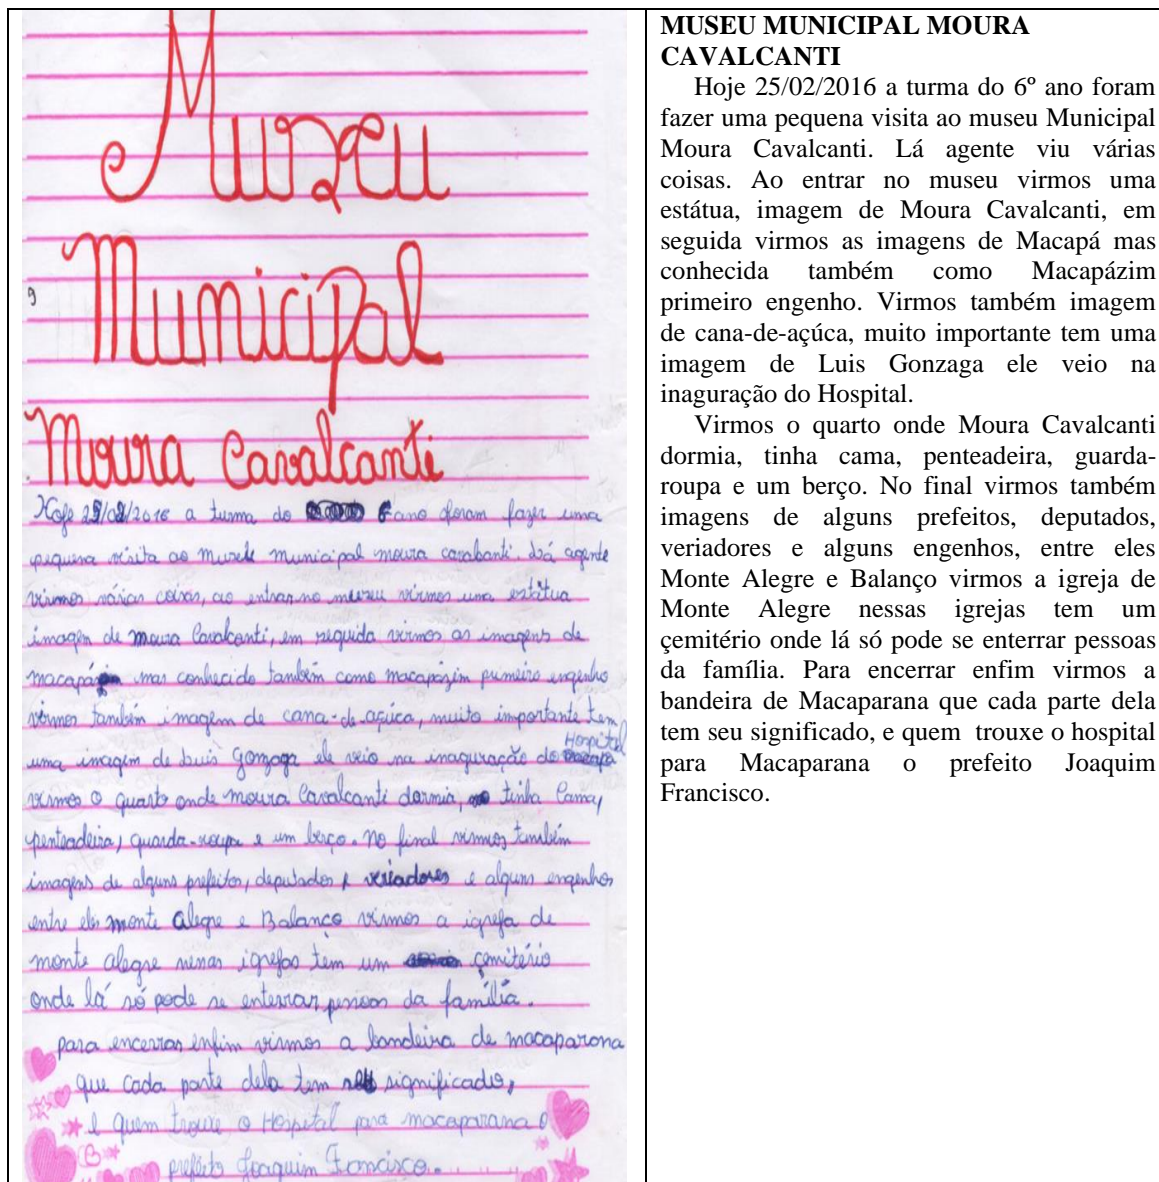 Museu
Municipal
Moura Cavalcanti
Hoje 25/02/2016 a turma do 6º ano foram fazer uma
pequena visita ao museu municipal moura cavalcanti. Lá agente
virmos várias coisas, ao entrar no museu virmos uma estátua
imagem de moura Cavalcanti, em seguida virmos as imagens de
macapá mas conhecido também como macapázim primeiro engenho
virmos também imagem de cana-de-açúca, muito importante tem
uma imagem de Luis Gonzaga ele veio na inaguração do Hospital
virmos o quarto onde moura Cavalcanti dormia, tinha Cama,
penteadeira, guarda-roupa e um berço. No final virmos também
imagens de alguns prefeitos, deputados, veriadores e alguns engenhos
entre eles monte Alegre e Balanço virmos a igreja de
monte Alegre nessas igrejas tem um çemitério
onde lá só pode se enterrar pessoas da família.
para encerrar enfim virmos a bandeira de macaparana
que cada parte dela tem seu significado,
e quem trouxe o Hospital para macaparana o
prefeito Joaquim Francisco.
MUSEU MUNICIPAL MOURA
CAVALCANTI
Hoje 25/02/2016 a turma do 6º ano foram
fazer uma pequena visita ao museu Municipal
Moura Cavalcanti. Lá agente viu várias
coisas. Ao entrar no museu virmos uma
estátua, imagem de Moura Cavalcanti, em
seguida virmos as imagens de Macapá mas
conhecida também como Macapázim
primeiro engenho. Virmos também imagem
de cana-de-açúca, muito importante tem uma
imagem de Luis Gonzaga ele veio na
inaguração do Hospital.
Virmos o quarto onde Moura Cavalcanti
dormia, tinha cama, penteadeira, guarda-
roupa e um berço. No final virmos também
imagens de alguns prefeitos, deputados,
veriadores e alguns engenhos, entre eles
Monte Alegre e Balanço virmos a igreja de
Monte Alegre nessas igrejas tem um
çemitério onde lá só pode se enterrar pessoas
da família. Para encerrar enfim virmos a
bandeira de Macaparana que cada parte dela
tem seu significado, e quem trouxe o hospital
para Macaparana o prefeito Joaquim
Francisco.